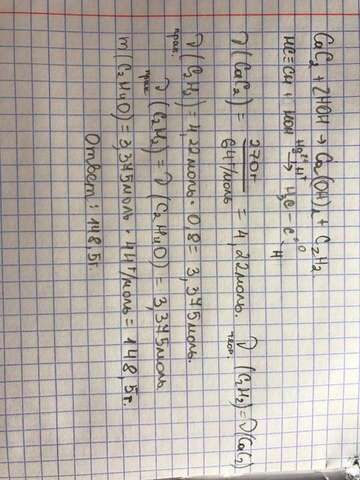 CaC₂ + 2HOH → Ca(OH)₂ + C₂H₂.
HC≡CH + HOH Hg²⁺, H⁺ → H₃C – C =O \H
ν(CaC₂) = 270г / 64г/моль = 4,22моль. ν теор. (C₂H₂) = ν(CaC₂)
ν прак. (C₂H₂) = 4,22моль · 0,8 = 3,375моль.
ν прак. (C₂H₂) = ν (C₂H₄O) = 3,375моль
m(C₂H₄O) = 3,375моль · 44г/моль = 148,5г.
Ответ: 148,5г